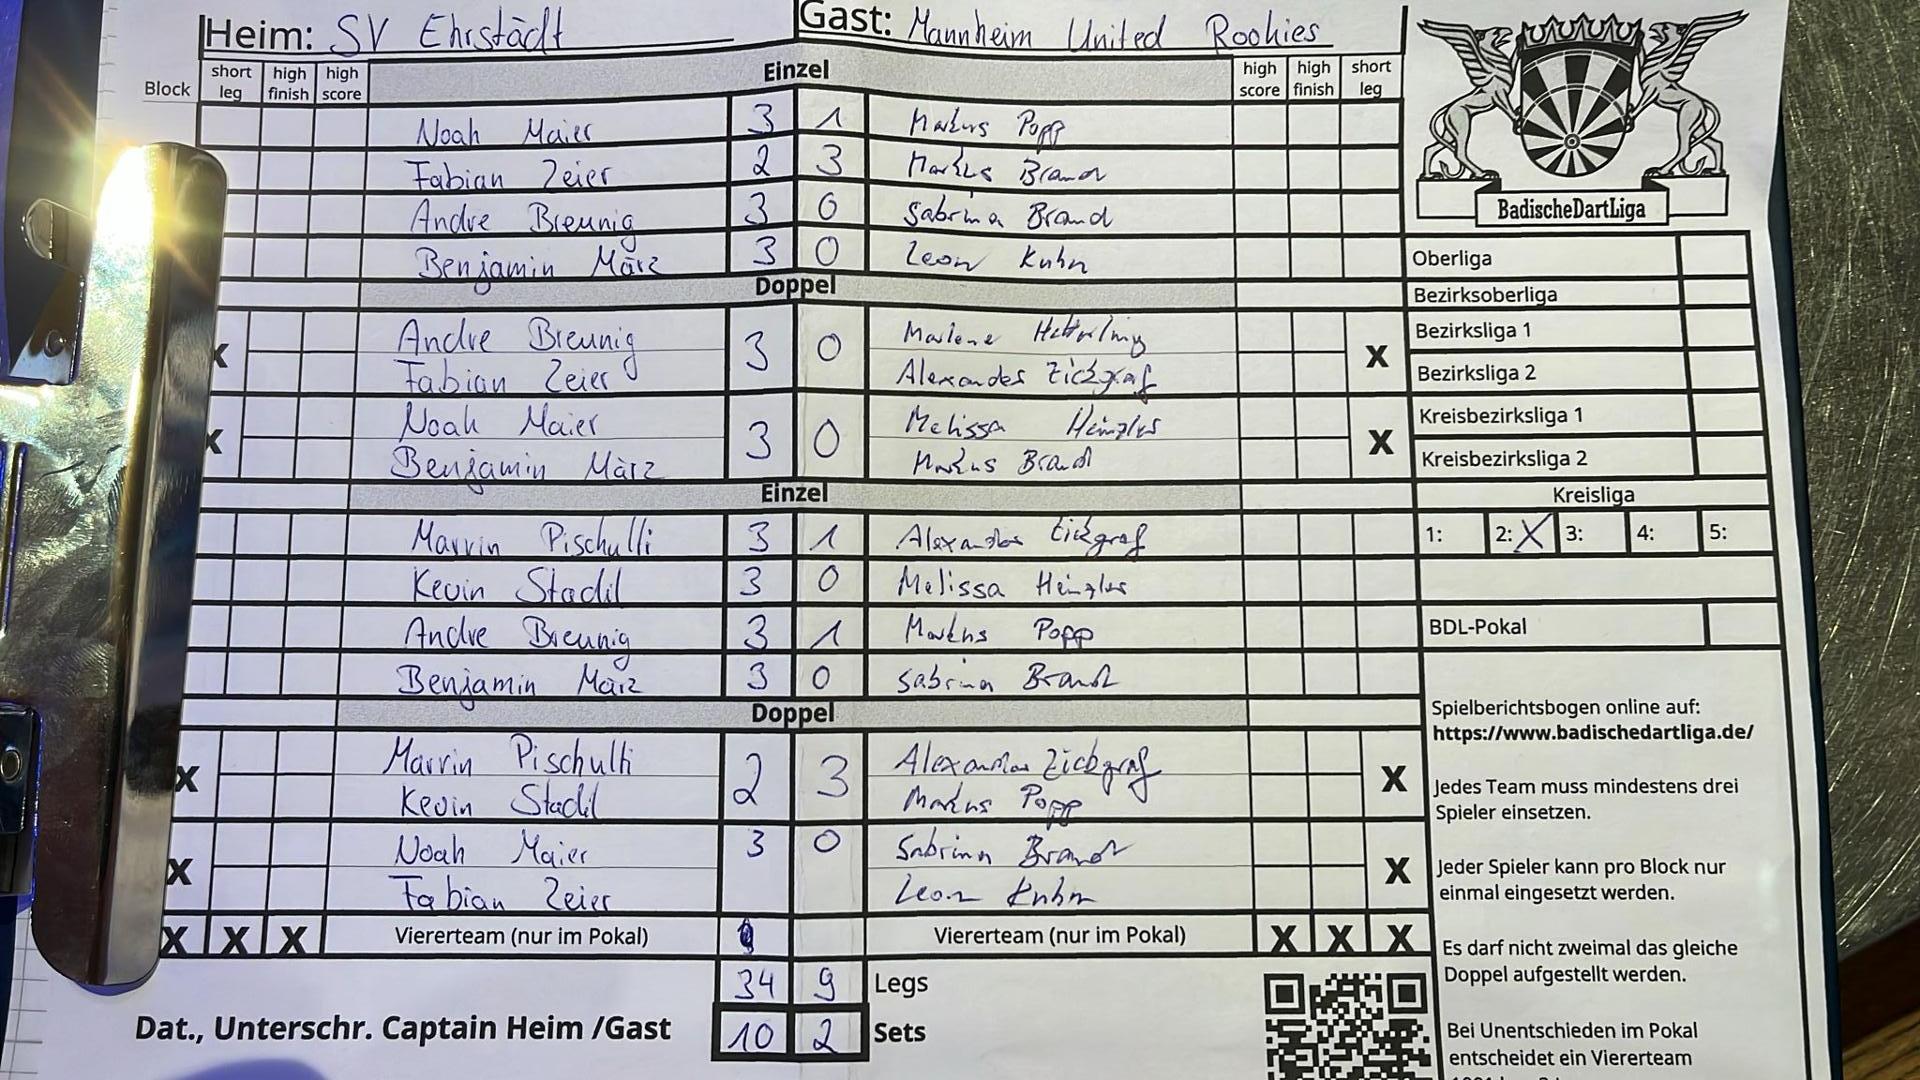 Heim: SV Ehrstädt Gast: Mannheim United Rookies
Block short leg high finish high score Einzel high score high finish short leg
Noah Maier 3 1 Markus Popp
Fabian Zeier 2 3 Markus Brand
Andre Breunig 3 0 Sabrina Brand
Benjamin März 3 0 Leon Kuhn
Doppel
Andre Breunig 3 0 Marlene
x Fabian Zeier Alexander Zickgraf X
Noah Maier 3 0 Melissa Heinzler
x Benjamin März Markus Brand X
Einzel
Marvin Pischulti 3 1 Alexander Zickgraf
Kevin Stadil 3 0 Melissa Heinzler
Andre Breunig 3 1 Markus Popp
Benjamin März 3 0 Sabrina Brand
Doppel
Marvin Pischulti 2 3 Alexander Zickgraf
X Kevin Stadil Markus Popp X
Noah Maier 3 0 Sabrina Brand
X Fabian Zeier Leon Kuhn X
X X X Viererteam (nur im Pokal) Viererteam (nur im Pokal) X X X
34 9 Legs
Dat., Unterschr. Captain Heim /Gast 10 2 Sets
BadischeDartLiga
Oberliga
Bezirksoberliga
Bezirksliga 1
Bezirksliga 2
Kreisbezirksliga 1
Kreisbezirksliga 2
Kreisliga
1: 2: X 3: 4: 5:
BDL-Pokal
Spielberichtsbogen online auf:
https://www.badischedartliga.de/
Jedes Team muss mindestens drei
Spieler einsetzen.
Jeder Spieler kann pro Block nur
einmal eingesetzt werden.
Es darf nicht zweimal das gleiche
Doppel aufgestellt werden.
Bei Unentschieden im Pokal
entscheidet ein Viererteam